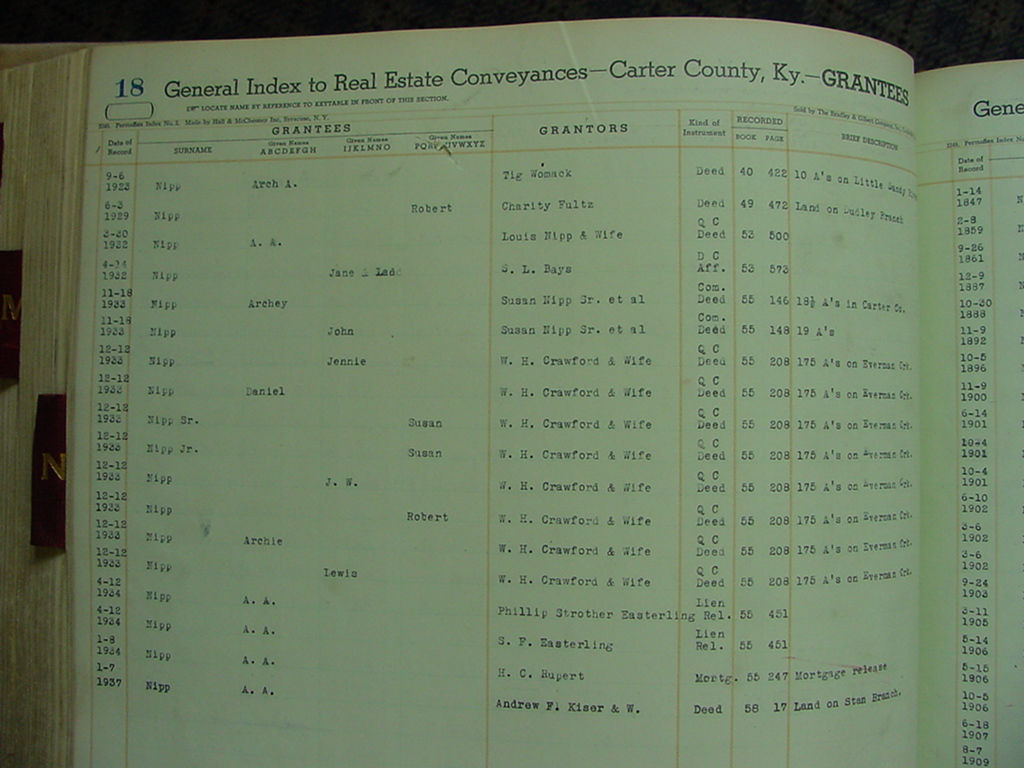 18 General Index to Real Estate Conveyances—Carter County, Ky.—GRANTEES
LOCATE NAME BY REFERENCE TO KEYTABLE IN FRONT OF THIS SECTION.
Date of Record GRANTEES SURNAME Given Names ABCDEFGH Given Names IJKLMNO Given Names GRANTORS Kind of Instrument RECORDED BOOK PAGE BRIEF DESCRIPTION
9-6 1923 Nipp Arch A. Tig Womack Deed 40 422 10 A's on Little
6-3 1929 Nipp Robert Charity Fultz Deed 49 472 Land on Dudley Branch
3-30 1932 Nipp A. A. Louis Nipp & Wife Q C Deed 53 500
1932 Nipp Jane S. L. Bays D C Aff. 53 573
11-18 1933 Nipp Archey Susan Nipp Sr. et al Com. Deed 55 146 18½ A's in Carter Co.
11-18 1933 Nipp John Susan Nipp Sr. et al Com. Deed 55 148 19 A's
12-12 1933 Nipp Jennie W. H. Crawford & Wife Q C Deed 55 208 175 A's on Everman Crk.
12-12 1933 Nipp Daniel W. H. Crawford & Wife Q C Deed 55 208 175 A's on Everman Crk.
12-12 1933 Nipp Sr. Susan W. H. Crawford & Wife Q C Deed 55 208 175 A's on Everman Crk.
12-12 1933 Nipp Jr. Susan W. H. Crawford & Wife Q C Deed 55 208 175 A's on Everman Crk.
12-12 1933 Nipp J. W. W. H. Crawford & Wife Q C Deed 55 208 175 A's on Everman Crk.
12-12 1933 Nipp Robert W. H. Crawford & Wife Q C Deed 55 208 175 A's on Everman Crk.
12-12 1933 Nipp Archie W. H. Crawford & Wife Q C Deed 55 208 175 A's on Everman Crk.
12-12 1933 Nipp Lewis W. H. Crawford & Wife Q C Deed 55 208 175 A's on Everman Crk.
4-12 1934 Nipp A. A. Phillip Strother Easterling Lien Rel. 55 451
4-12 1934 Nipp A. A. S. F. Easterling Lien Rel. 55 451
1-8 1934 Nipp A. A. H. C. Rupert Mortg. 55 247 Mortgage release
1-7 1937 Nipp A. A. Andrew F. Kiser & W. Deed 58 17 Land on Stan Branch.
Gene
Date of Record
1-14 1847
2-8 1859
9-26 1861
12-9 1887
10-30 1888
11-9 1892
10-5 1896
11-9 1900
6-14 1901
10-4 1901
10-4 1901
6-10 1902
3-6 1902
3-6 1902
9-24 1903
3-11 1905
5-14 1906
5-15 1906
10-5 1906
6-18 1907
8-7 1909
M
N